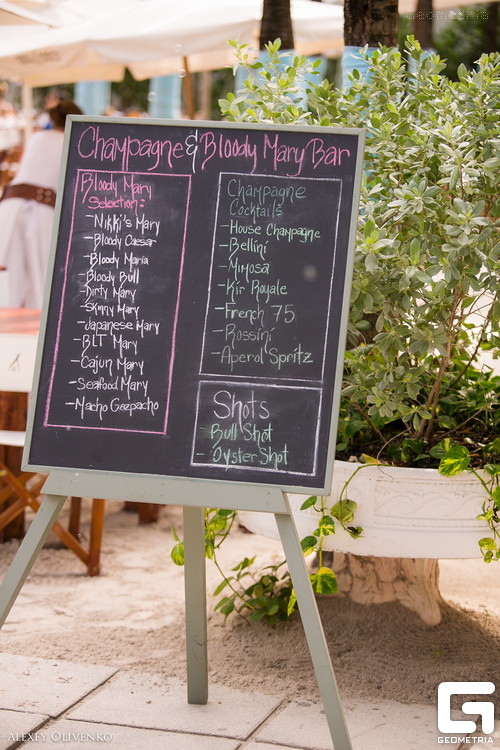 GEOMETRIA
Champagne & Bloody Mary Bar
Bloody Mary
Selection:
-Nikki's Mary
-Bloody Caesar
-Bloody Maria
-Bloody Bull
-Dirty Mary
-Skinny Mary
-Japanese Mary
-BLT Mary
-Cajun Mary
-Seafood Mary
-Macho Gazpacho
Champagne
Cocktails
-House Champagne
-Bellini
-Mimosa
-Kir Royale
-French 75
-Rossini
-Aperol Spritz
Shots
-Bull Shot
-Oyster Shot
ALEXEY OLIVENKO
G
GEOMETRIA